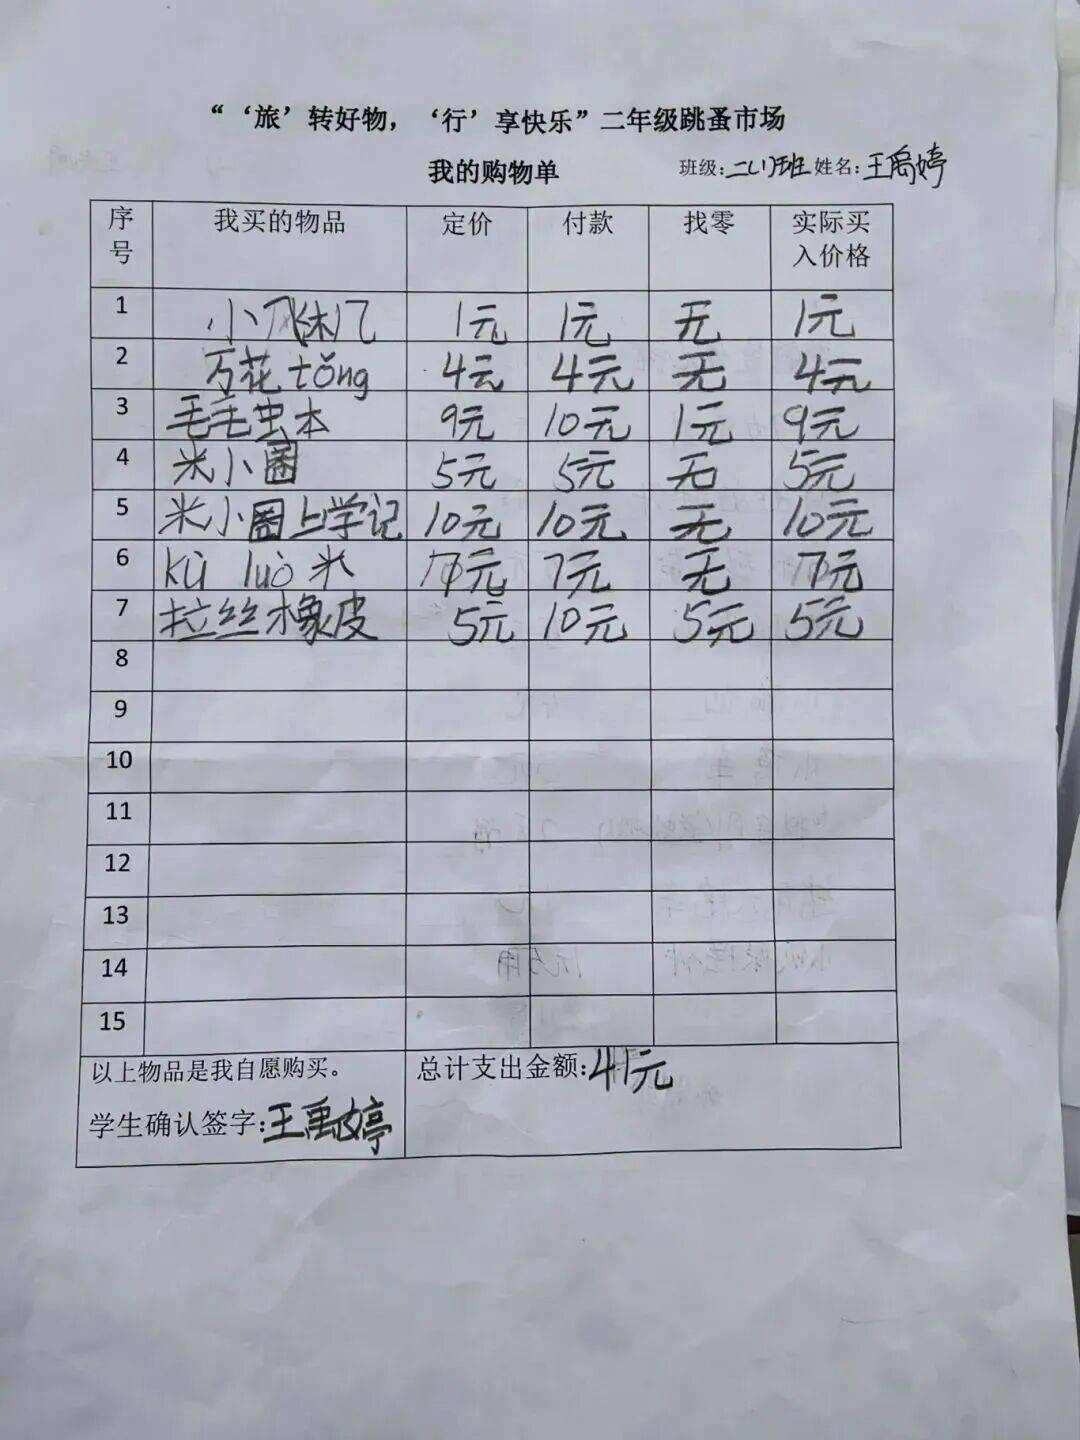 “‘旅’转好物，‘行’享快乐”二年级跳蚤市场
我的购物单 班级：二(1)班 姓名：王禹婷
序号 我买的物品 定价 付款 找零 实际买入价格
1 小飞机 1元 1元 无 1元
2 万花tǒng 4元 4元 无 4元
3 毛毛虫本 9元 10元 1元 9元
4 米小圈 5元 5元 无 5元
5 米小圈上学记 10元 10元 无 10元
6 kù luò米 7元 7元 无 7元
7 拉丝橡皮 5元 10元 5元 5元
8
9
10
11
12
13
14
15
以上物品是我自愿购买。 总计支出金额：41元
学生确认签字：王禹婷